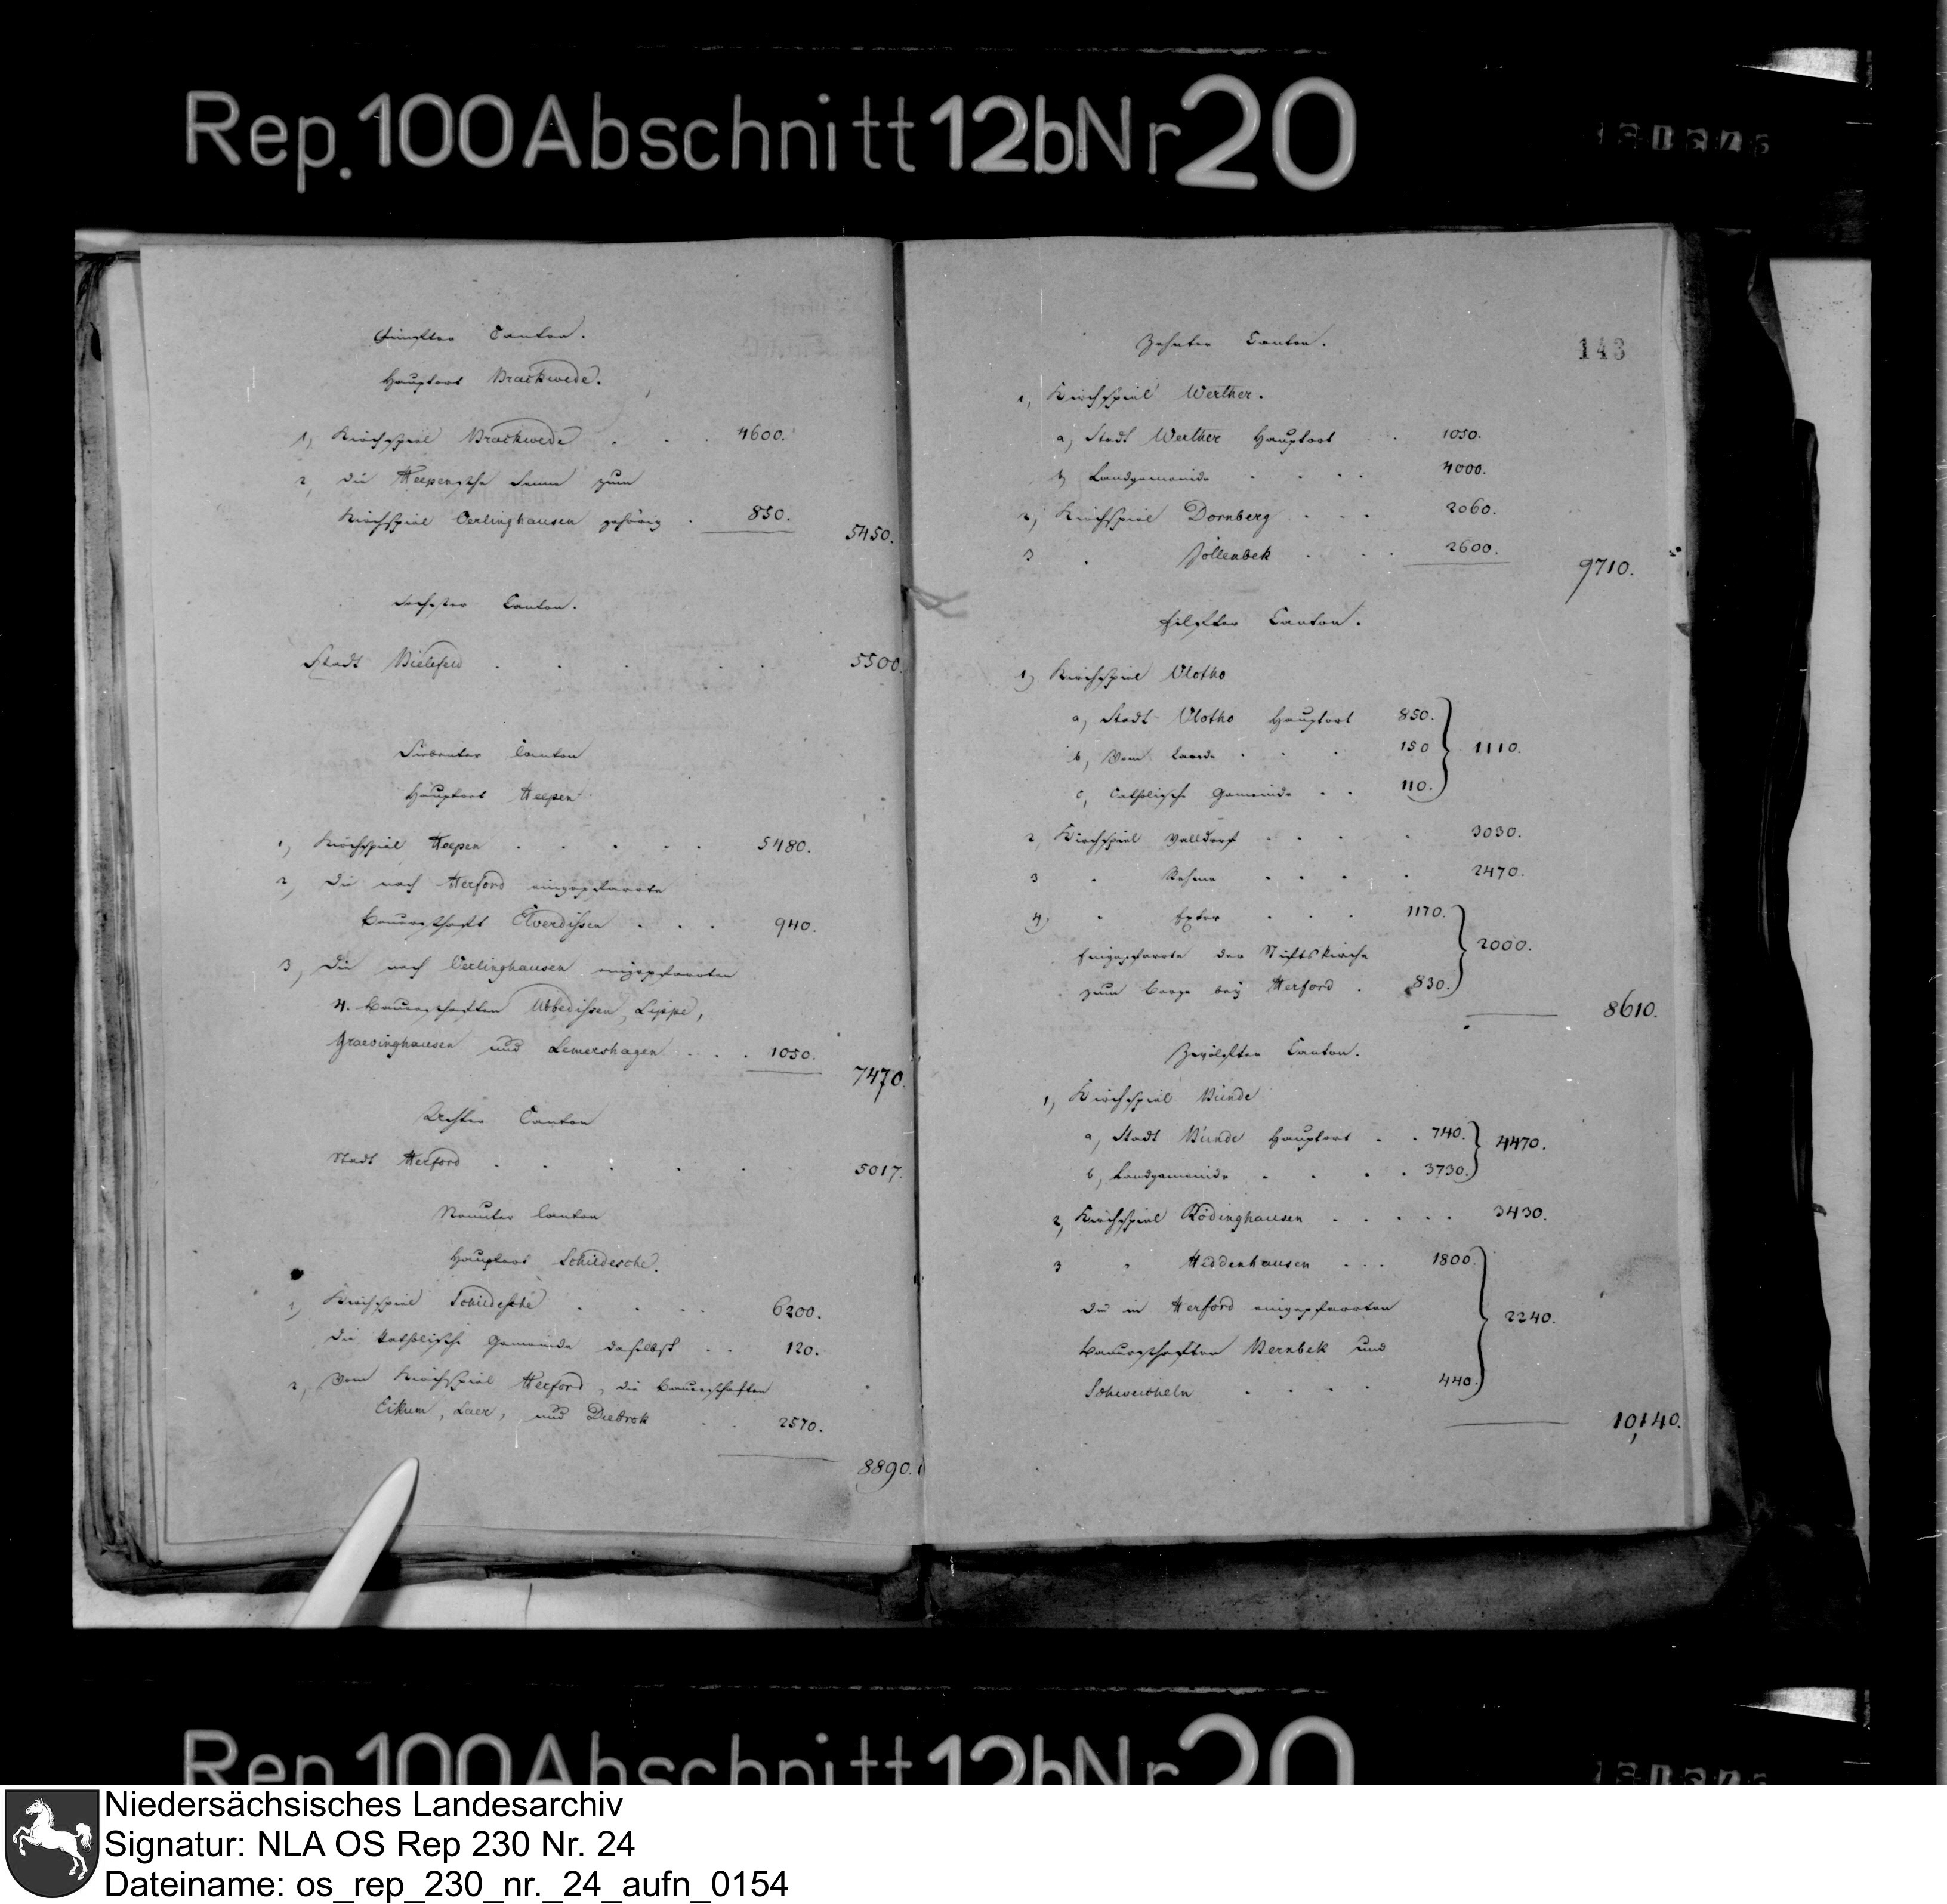 Rep. 100 Abschnitt 12b Nr 20
Fünfter Canton.
Hauptort Brackwede.
1, Kirchspiel Brackwede . . . 4600.
2, die Heepensche Senne zum
Kirchspiel Oerlinghausen gehörig . 850.
5450.
Sechster Canton.
Stadt Bielefeld . . . . . 5500.
Siebenter Canton
Hauptort Heepen
1, Kirchspiel Heepen . . . . . 5480.
2, Die nach Herford eingepfarrte
Bauerschaft Elverdissen . . . 940.
3, Die nach Oerlinghausen eingepfarrten
4. Bauerschaften Ubbedissen, Lippe,
Graevinghausen und Lemershagen . . . . 1050.
7470.
Achter Canton
Stadt Herford . . . . . 5017.
Neunter Canton
Hauptort Schildesche.
1, Kirchspiel Schildesche . . . . 6200.
Die katholische Gemeinde daselbst . . 120.
2, Vom Kirchspiel Herford, die Bauerschaften
Eikum, Laer, und Diebrok . . 2570.
8890.
143
Zehnter Canton.
1, Kirchspiel Werther.
a, Stadt Werther Hauptort . . 1050.
b, Landgemeinde . . . . 4000.
2, Kirchspiel Dornberg . . . 2060.
3 . Jöllenbek . . . 2600.
9710.
Eilfter Canton.
1, Kirchspiel Vlotho
a, Stadt Vlotho Hauptort 850.
b, Vom Lande . . . 150 } 1110.
c, Catholische Gemeinde . . 110.
2, Kirchspiel Valldorf . . . . 3030.
3 . Rehme . . . . . 2470.
4, . Exter . . . 1170.
Eingepfarrte der Stiftskirche } 2000.
zum Berge bey Herford . 830.
8610.
Zwölfter Canton.
1, Kirchspiel Bünde
a, Stadt Bünde Hauptort . . 740. } 4470.
b, Landgemeinde . . . . 3730.
2, Kirchspiel Rödinghausen . . . . . 3430.
3 . Hiddenhausen . . . 1800.
Die in Herford eingepfarrten } 2240.
Bauerschaften Bernbek und
Schweicheln . . . . 440.
10,140.
Rep. 100 Abschnitt 12b Nr 20
Niedersächsisches Landesarchiv
Signatur: NLA OS Rep 230 Nr. 24
Dateiname: os_rep_230_nr._24_aufn_0154